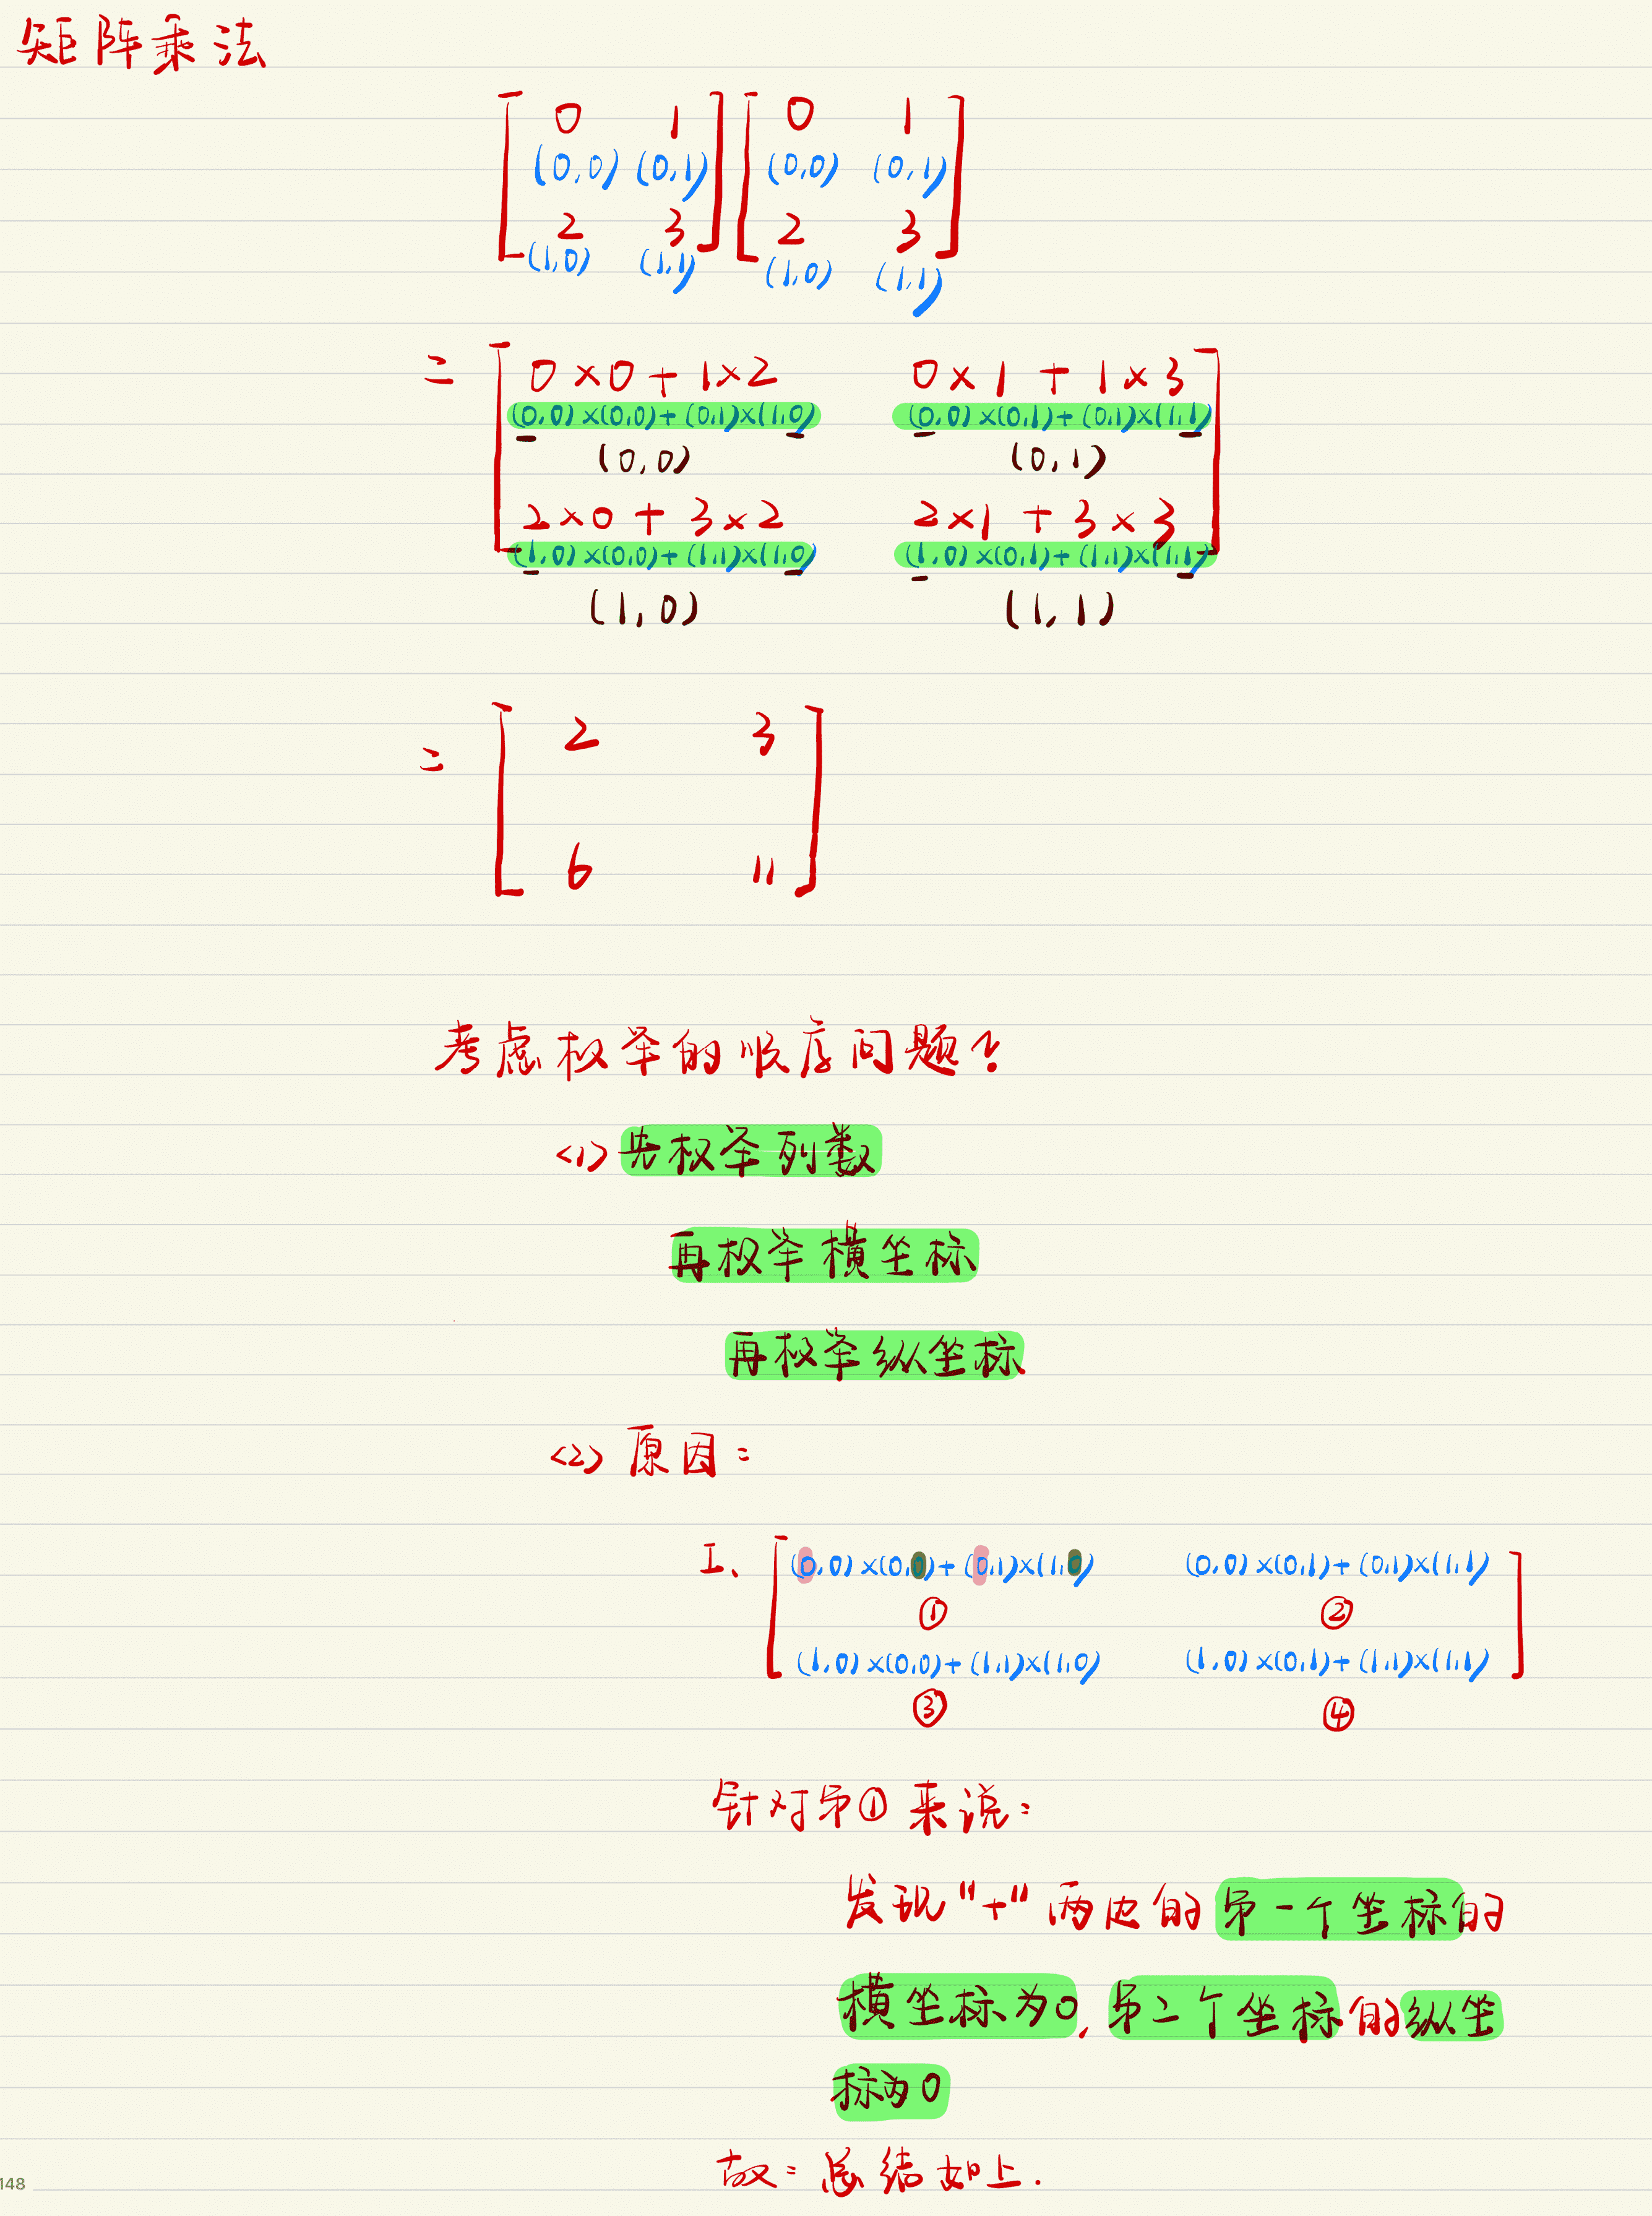 矩阵乘法
[ 0 1 ] [ 0 1 ]
(0,0) (0,1) (0,0) (0,1)
2 3 2 3
(1,0) (1,1) (1,0) (1,1)
= [ 0×0+1×2 0×1+1×3 ]
(0,0)×(0,0)+(0,1)×(1,0) (0,0)×(0,1)+(0,1)×(1,1)
(0,0) (0,1)
2×0+3×2 2×1+3×3
(1,0)×(0,0)+(1,1)×(1,0) (1,0)×(0,1)+(1,1)×(1,1)
(1,0) (1,1)
= [ 2 3 ]
6 11
考虑枚举的顺序问题?
<1> 先枚举列数
再枚举横坐标
再枚举纵坐标
<2> 原因:
I、 [ (0,0)×(0,0)+(0,1)×(1,0) (0,0)×(0,1)+(0,1)×(1,1) ]
① ②
(1,0)×(0,0)+(1,1)×(1,0) (1,0)×(0,1)+(1,1)×(1,1)
③ ④
针对第①来说:
发现"+"两边的第一个坐标的
横坐标为0,第二个坐标的纵坐
标为0
故:总结如上.
148